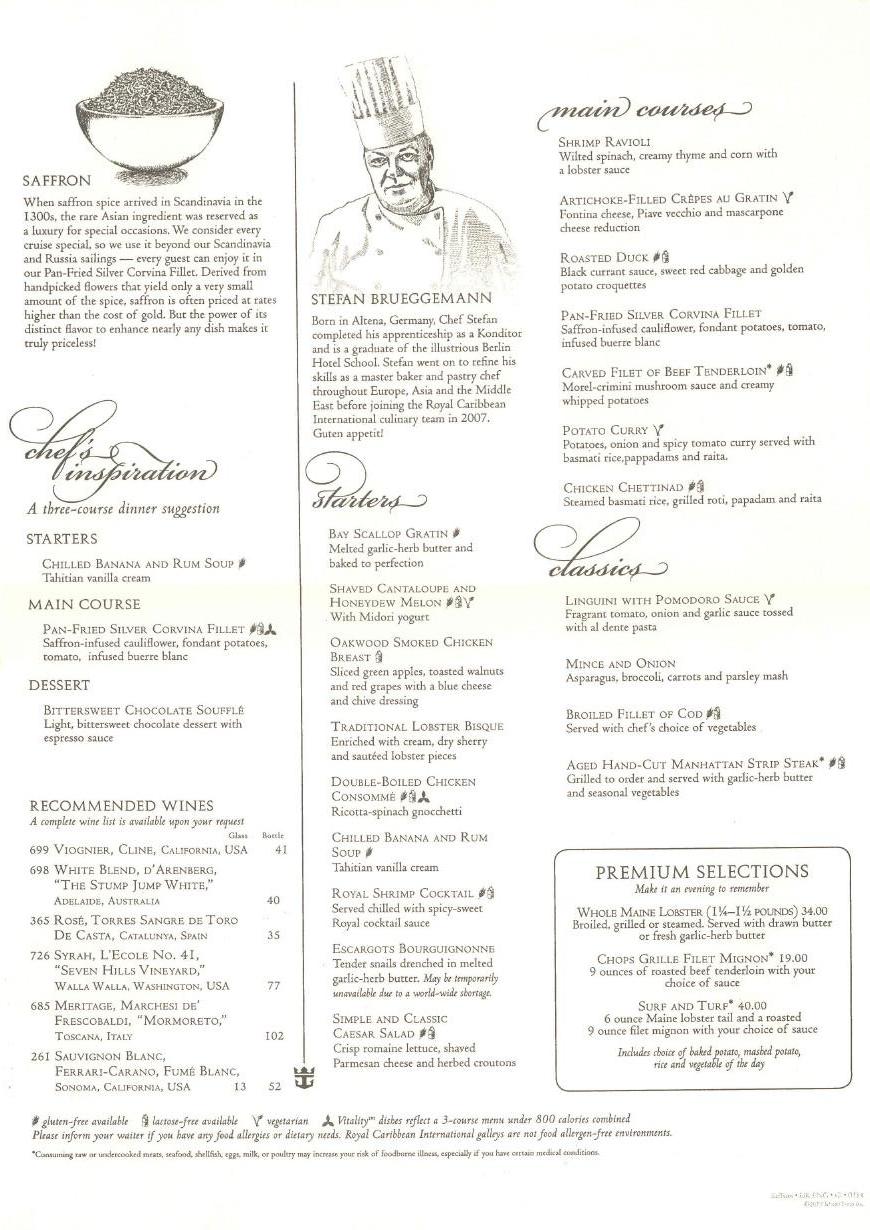 SAFFRON
When saffron spice arrived in Scandinavia in the
1300s, the rare Asian ingredient was reserved as
a luxury for special occasions. We consider every
cruise special, so we use it beyond our Scandinavia
and Russia sailings — every guest can enjoy it in
our Pan-Fried Silver Corvina Fillet. Derived from
handpicked flowers that yield only a very small
amount of the spice, saffron is often priced at rates
higher than the cost of gold. But the power of its
distinct flavor to enhance nearly any dish makes it
truly priceless!
chef's
inspiration
A three-course dinner suggestion
STARTERS
CHILLED BANANA AND RUM SOUP
Tahitian vanilla cream
MAIN COURSE
PAN-FRIED SILVER CORVINA FILLET
Saffron-infused cauliflower, fondant potatoes,
tomato, infused buerre blanc
DESSERT
BITTERSWEET CHOCOLATE SOUFFLÉ
Light, bittersweet chocolate dessert with
espresso sauce
RECOMMENDED WINES
A complete wine list is available upon your request
Glass Bottle
699 VIOGNIER, CLINE, CALIFORNIA, USA 41
698 WHITE BLEND, D'ARENBERG,
"THE STUMP JUMP WHITE,"
ADELAIDE, AUSTRALIA 40
365 ROSÉ, TORRES SANGRE DE TORO
DE CASTA, CATALUNYA, SPAIN 35
726 SYRAH, L'ECOLE NO. 41,
"SEVEN HILLS VINEYARD,"
WALLA WALLA, WASHINGTON, USA 77
685 MERITAGE, MARCHESI DE'
FRESCOBALDI, "MORMORETO,"
TOSCANA, ITALY 102
261 SAUVIGNON BLANC,
FERRARI-CARANO, FUMÉ BLANC,
SONOMA, CALIFORNIA, USA 13 52
STEFAN BRUEGGEMANN
Born in Altena, Germany, Chef Stefan
completed his apprenticeship as a Konditor
and is a graduate of the illustrious Berlin
Hotel School. Stefan went on to refine his
skills as a master baker and pastry chef
throughout Europe, Asia and the Middle
East before joining the Royal Caribbean
International culinary team in 2007.
Guten appetit!
starters
BAY SCALLOP GRATIN
Melted garlic-herb butter and
baked to perfection
SHAVED CANTALOUPE AND
HONEYDEW MELON
With Midori yogurt
OAKWOOD SMOKED CHICKEN
BREAST
Sliced green apples, toasted walnuts
and red grapes with a blue cheese
and chive dressing
TRADITIONAL LOBSTER BISQUE
Enriched with cream, dry sherry
and sautéed lobster pieces
DOUBLE-BOILED CHICKEN
CONSOMMÉ
Ricotta-spinach gnocchetti
CHILLED BANANA AND RUM
SOUP
Tahitian vanilla cream
ROYAL SHRIMP COCKTAIL
Served chilled with spicy-sweet
Royal cocktail sauce
ESCARGOTS BOURGUIGNONNE
Tender snails drenched in melted
garlic-herb butter. May be temporarily
unavailable due to a world-wide shortage.
SIMPLE AND CLASSIC
CAESAR SALAD
Crisp romaine lettuce, shaved
Parmesan cheese and herbed croutons
main courses
SHRIMP RAVIOLI
Wilted spinach, creamy thyme and corn with
a lobster sauce
ARTICHOKE-FILLED CRÊPES AU GRATIN
Fontina cheese, Piave vecchio and mascarpone
cheese reduction
ROASTED DUCK
Black currant sauce, sweet red cabbage and golden
potato croquettes
PAN-FRIED SILVER CORVINA FILLET
Saffron-infused cauliflower, fondant potatoes, tomato,
infused buerre blanc
CARVED FILET OF BEEF TENDERLOIN*
Morel-crimini mushroom sauce and creamy
whipped potatoes
POTATO CURRY
Potatoes, onion and spicy tomato curry served with
basmati rice,pappadams and raita.
CHICKEN CHETTINAD
Steamed basmati rice, grilled roti, papadam and raita
classics
LINGUINI WITH POMODORO SAUCE
Fragrant tomato, onion and garlic sauce tossed
with al dente pasta
MINCE AND ONION
Asparagus, broccoli, carrots and parsley mash
BROILED FILLET OF COD
Served with chef's choice of vegetables
AGED HAND-CUT MANHATTAN STRIP STEAK*
Grilled to order and served with garlic-herb butter
and seasonal vegetables
PREMIUM SELECTIONS
Make it an evening to remember
WHOLE MAINE LOBSTER (1¼–1½ POUNDS) 34.00
Broiled, grilled or steamed. Served with drawn butter
or fresh garlic-herb butter
CHOPS GRILLE FILET MIGNON* 19.00
9 ounces of roasted beef tenderloin with your
choice of sauce
SURF AND TURF* 40.00
6 ounce Maine lobster tail and a roasted
9 ounce filet mignon with your choice of sauce
Includes choice of baked potato, mashed potato,
rice and vegetable of the day
gluten-free available lactose-free available vegetarian Vitality™ dishes reflect a 3-course menu under 800 calories combined
Please inform your waiter if you have any food allergies or dietary needs. Royal Caribbean International galleys are not food allergen-free environments.
*Consuming raw or undercooked meats, seafood, shellfish, eggs, milk, or poultry may increase your risk of foodborne illness, especially if you have certain medical conditions.